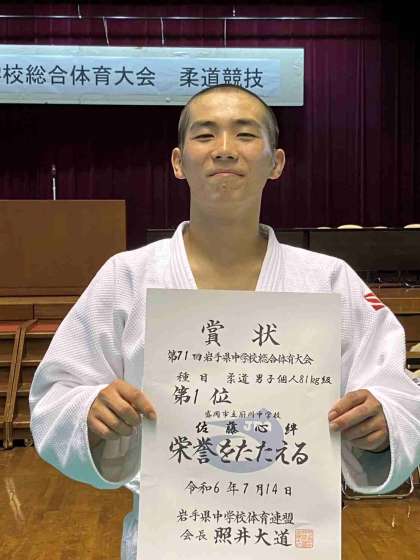 学校総合体育大会　柔道競技
賞状
第71回岩手県中学校総合体育大会
種目　柔道 男子個人81kg級
第1位
盛岡市立厨川中学校
佐藤心絆
栄誉をたたえる
令和6年7月14日
岩手県中学校体育連盟
会長 照井大道